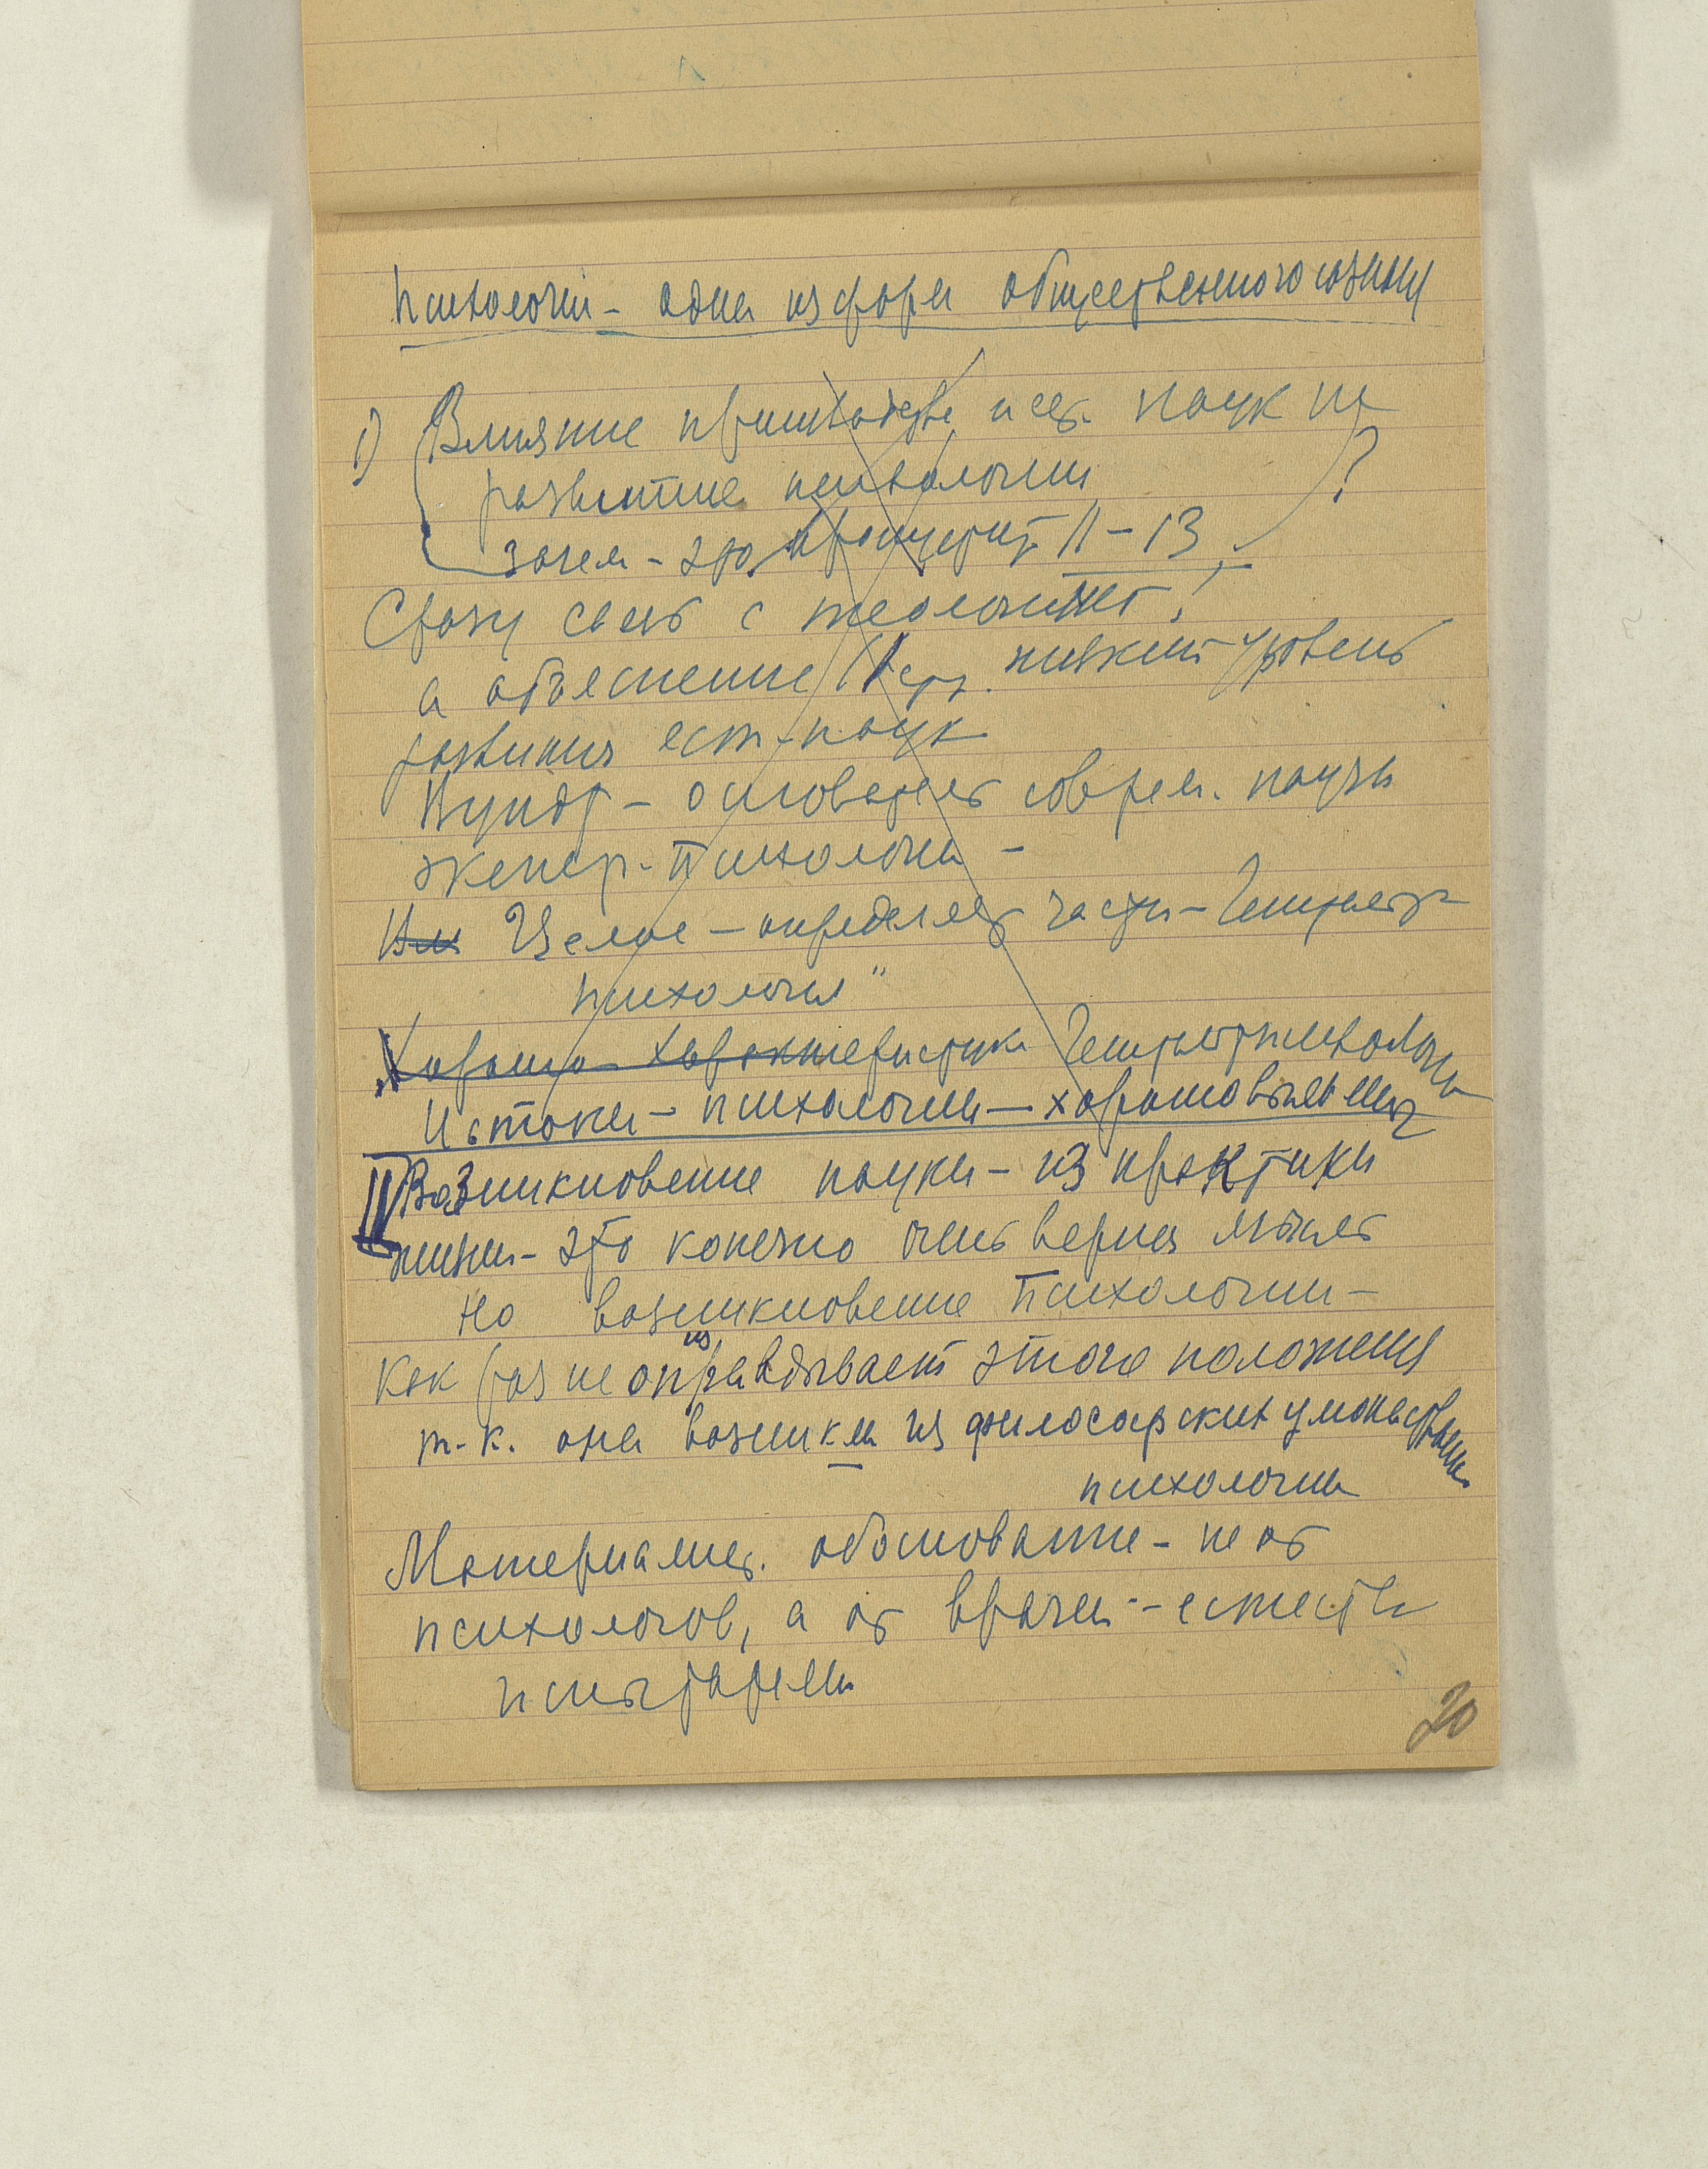 Психология – одна из форм общественного сознания
1) Влияние производства и ест. наук на
развитие психологии ?
зачем – это, пропустить 11–13
Сразу связь с теологией!
а объяснение низкий уровень
развития ест-наук
Вундт – основатель соврем. научн
экспер. Психологии –
Вл Целое – определяет части – Гештальт
психология"
Хорошо характеристика Гештальтпсихологии
Истоки – психологии – хорошо
II Возникновение науки – из практики
жизни – это конечно очень верная мысль
Но возникновение Психологии –
как раз не оправдывает этого положения
т.к. она возникла из философских умонастроений
психологии
Материалист. обоснование – не от
психологов, а от врачей – естеств
испытателей
20